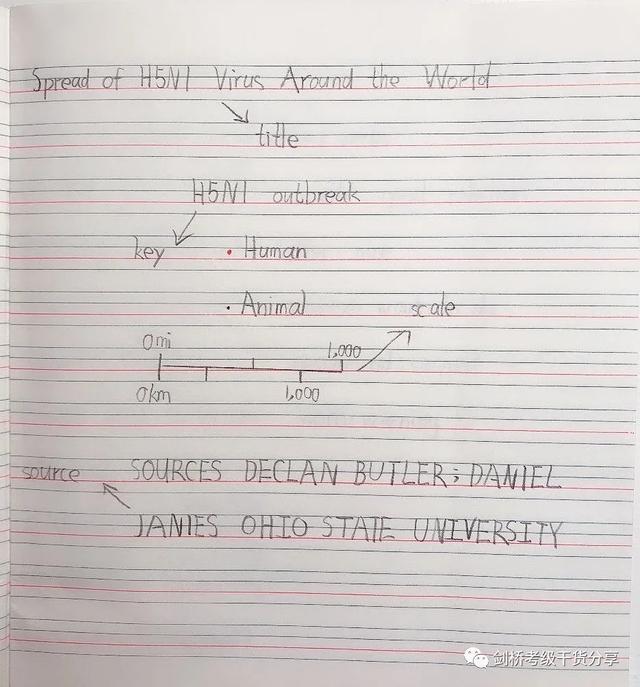 Spread of H5N1 Virus Around the World
title
H5N1 outbreak
key • Human
• Animal scale
0mi 1,000
0km 1,000
source SOURCES DECLAN BUTLER; DANIEL
JANIES OHIO STATE UNIVERSITY
剑桥考级干货分享